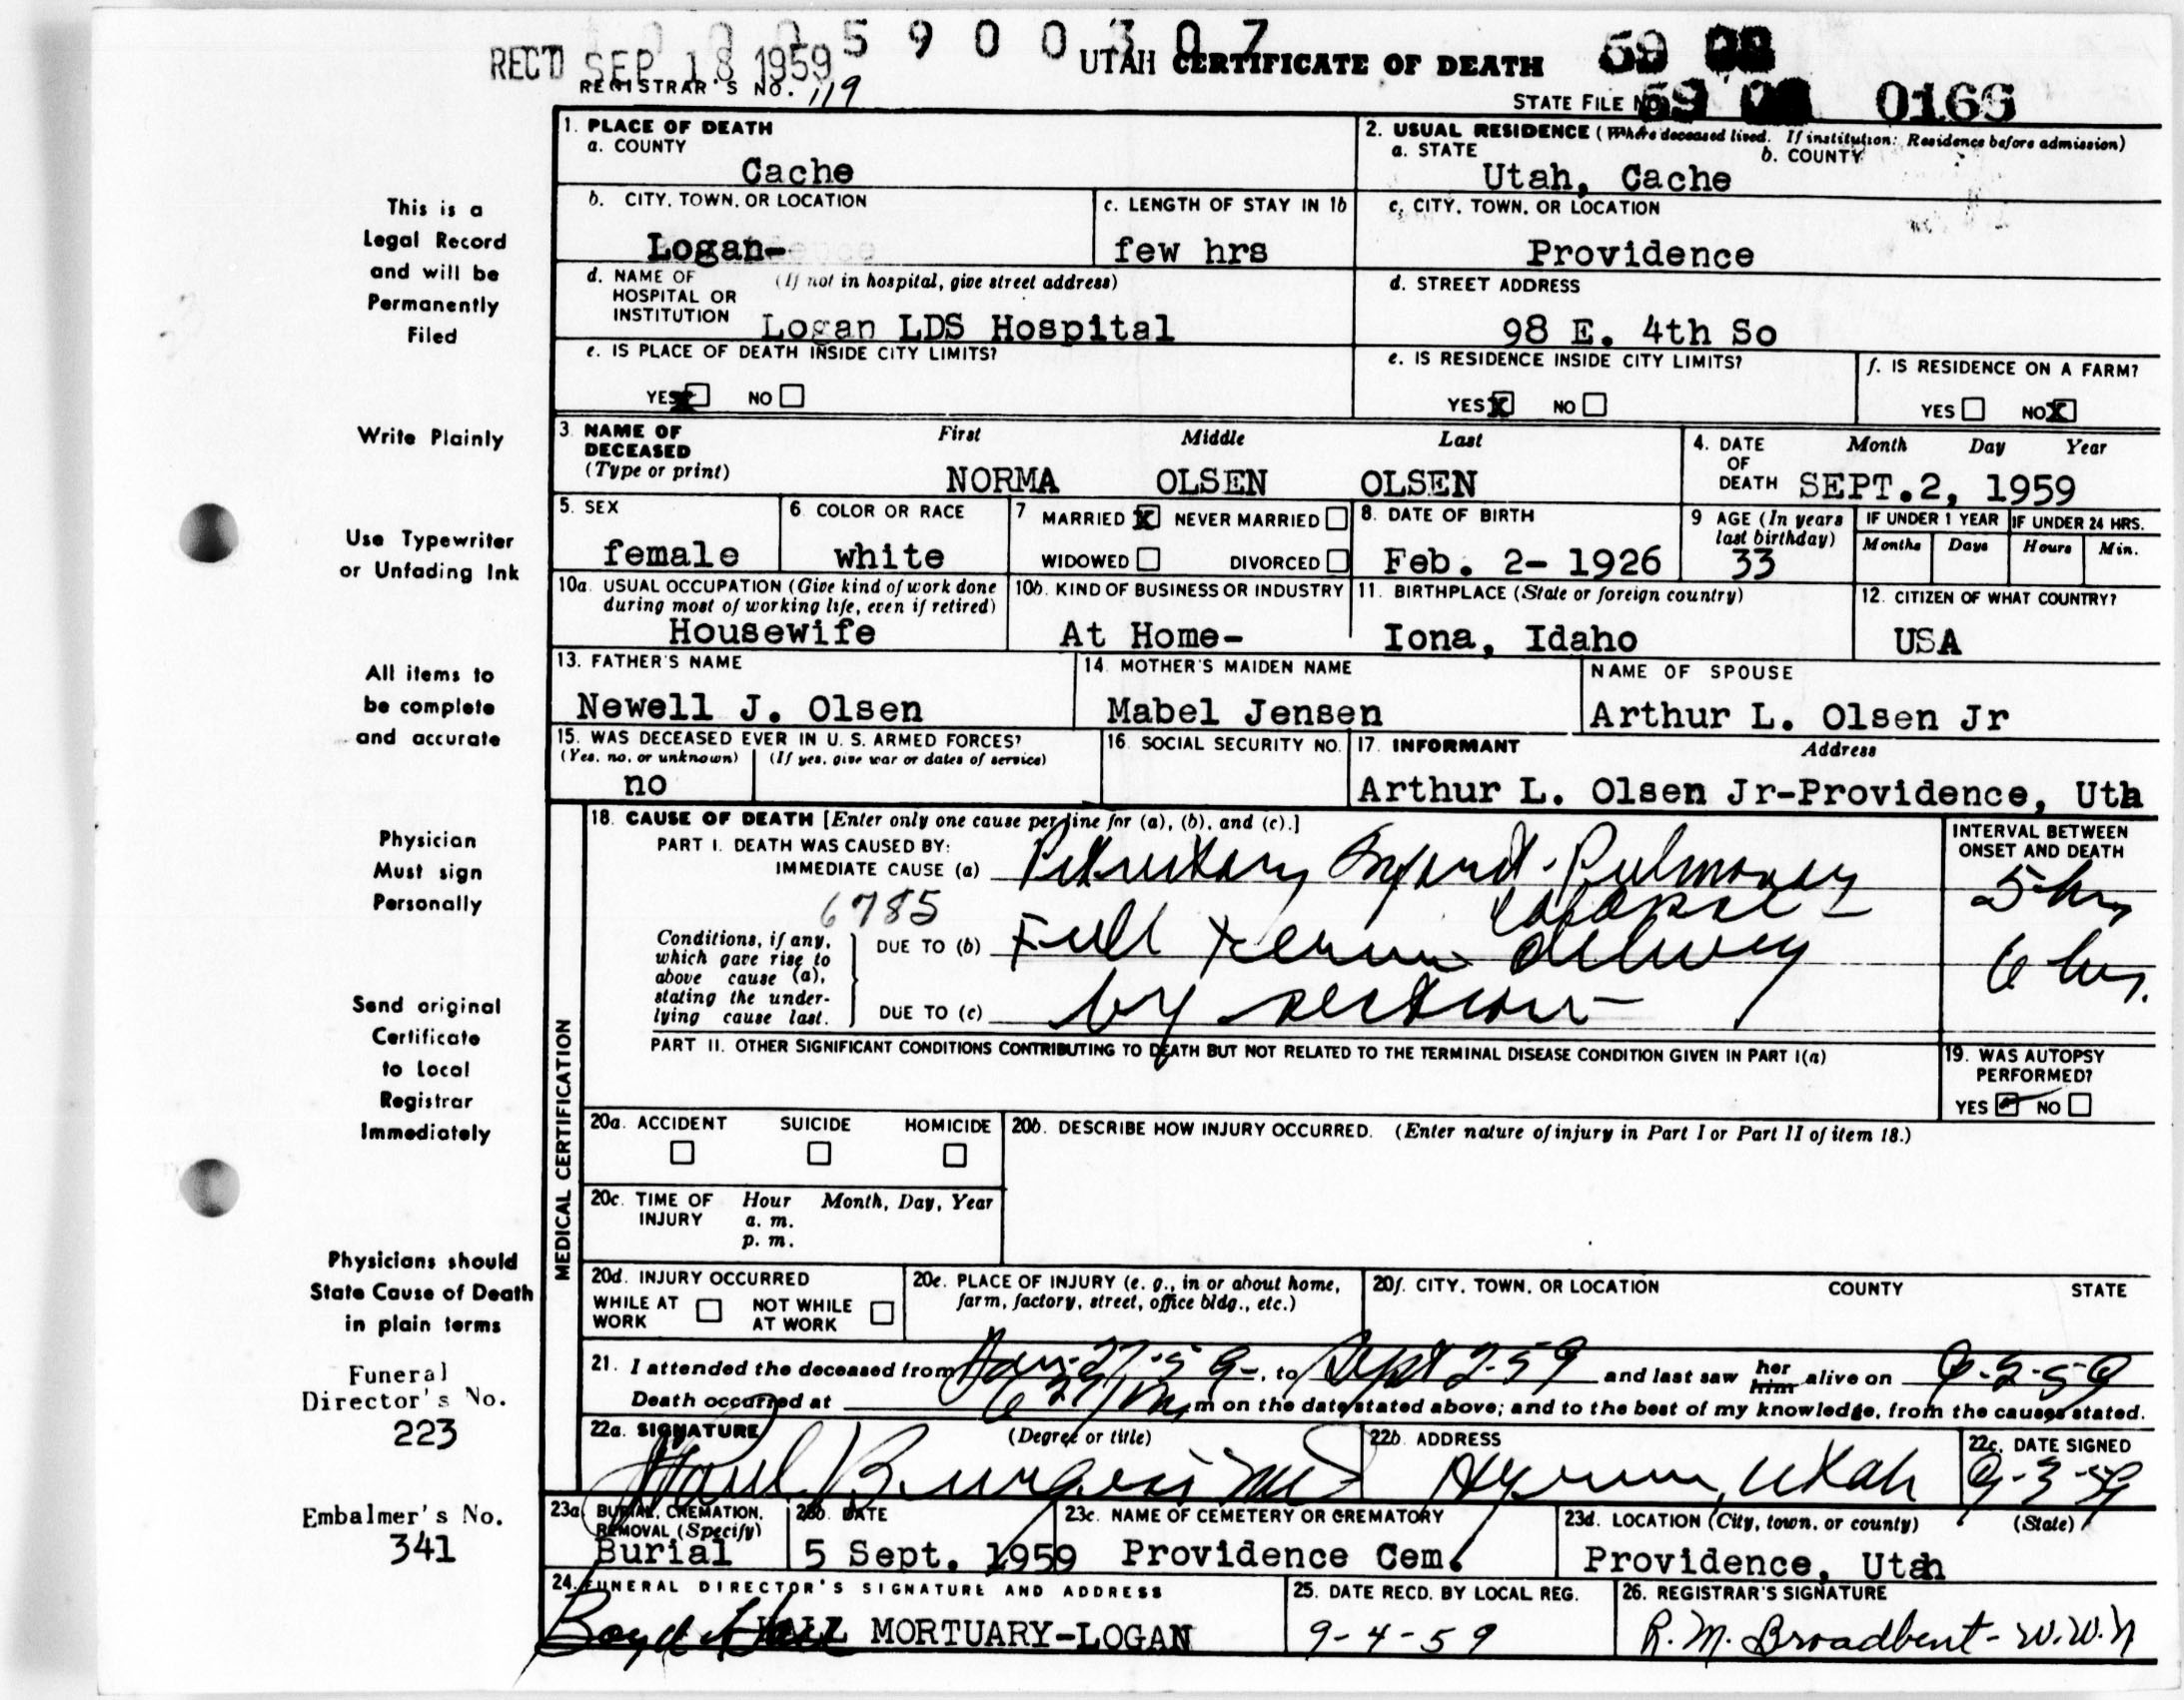 1005900307
REC'D SEP 18 1959 UTAH CERTIFICATE OF DEATH 59
REGISTRAR'S NO. 119
STATE FILE NO. 59 0166
1. PLACE OF DEATH
a. COUNTY
Cache
2. USUAL RESIDENCE (Where deceased lived. If institution: Residence before admission)
a. STATE b. COUNTY
Utah, Cache
b. CITY, TOWN, OR LOCATION
Logan-
c. LENGTH OF STAY IN 1b
few hrs
c. CITY, TOWN, OR LOCATION
Providence
d. NAME OF (If not in hospital, give street address)
HOSPITAL OR
INSTITUTION Logan LDS Hospital
d. STREET ADDRESS
98 E. 4th So
e. IS PLACE OF DEATH INSIDE CITY LIMITS?
YES NO
e. IS RESIDENCE INSIDE CITY LIMITS?
YES X NO
f. IS RESIDENCE ON A FARM?
YES NO X
3. NAME OF DECEASED (Type or print)
First Middle Last
NORMA OLSEN OLSEN
4. DATE OF DEATH Month Day Year
SEPT.2, 1959
5. SEX
female
6. COLOR OR RACE
white
7 MARRIED X NEVER MARRIED
WIDOWED DIVORCED
8. DATE OF BIRTH
Feb. 2- 1926
9 AGE (In years last birthday)
33
IF UNDER 1 YEAR IF UNDER 24 HRS.
Months Days Hours Min.
10a. USUAL OCCUPATION (Give kind of work done
during most of working life, even if retired)
Housewife
10b. KIND OF BUSINESS OR INDUSTRY
At Home-
11. BIRTHPLACE (State or foreign country)
Iona, Idaho
12. CITIZEN OF WHAT COUNTRY?
USA
13. FATHER'S NAME
Newell J. Olsen
14. MOTHER'S MAIDEN NAME
Mabel Jensen
NAME OF SPOUSE
Arthur L. Olsen Jr
15. WAS DECEASED EVER IN U. S. ARMED FORCES?
(Yes, no, or unknown) (If yes, give war or dates of service)
no
16. SOCIAL SECURITY NO.
17. INFORMANT Address
Arthur L. Olsen Jr-Providence, Uta
MEDICAL CERTIFICATION
18. CAUSE OF DEATH [Enter only one cause per line for (a), (b), and (c).]
PART I. DEATH WAS CAUSED BY:
IMMEDIATE CAUSE (a) Pituitary Infarct - Pulmonary
collapse
6785
INTERVAL BETWEEN
ONSET AND DEATH
5 hrs
Conditions, if any,
which gave rise to
above cause (a),
stating the under-
lying cause last.
DUE TO (b) Full term delivery
6 hrs.
DUE TO (c) by section
PART II. OTHER SIGNIFICANT CONDITIONS CONTRIBUTING TO DEATH BUT NOT RELATED TO THE TERMINAL DISEASE CONDITION GIVEN IN PART I(a)
19. WAS AUTOPSY
PERFORMED?
YES NO
20a. ACCIDENT SUICIDE HOMICIDE
20b. DESCRIBE HOW INJURY OCCURRED. (Enter nature of injury in Part I or Part II of item 18.)
20c. TIME OF INJURY Hour Month, Day, Year
a. m.
p. m.
20d. INJURY OCCURRED
WHILE AT WORK NOT WHILE AT WORK
20e. PLACE OF INJURY (e. g., in or about home,
farm, factory, street, office bldg., etc.)
20f. CITY, TOWN, OR LOCATION COUNTY STATE
21. I attended the deceased from Jan-27-59-, to Sept 2-59 and last saw her him alive on 9-2-59
Death occurred at m on the date stated above; and to the best of my knowledge, from the causes stated.
22a. SIGNATURE (Degree or title)
Burgess MD
22b. ADDRESS
Hyrum, Utah
22c. DATE SIGNED
9-3-59
23a. BURIAL, CREMATION,
REMOVAL (Specify)
Burial
23b. DATE
5 Sept. 1959
23c. NAME OF CEMETERY OR CREMATORY
Providence Cem.
23d. LOCATION (City, town, or county) (State)
Providence, Utah
24. FUNERAL DIRECTOR'S SIGNATURE AND ADDRESS
Boyd Hall HALL MORTUARY-LOGAN
25. DATE RECD. BY LOCAL REG.
9-4-59
26. REGISTRAR'S SIGNATURE
R. M. Broadbent - W.W.N
This is a
Legal Record
and will be
Permanently
Filed
Write Plainly
Use Typewriter
or Unfading Ink
All items to
be complete
and accurate
Physician
Must sign
Personally
Send original
Certificate
to Local
Registrar
Immediately
Physicians should
State Cause of Death
in plain terms
Funeral
Director's No.
223
Embalmer's No.
341